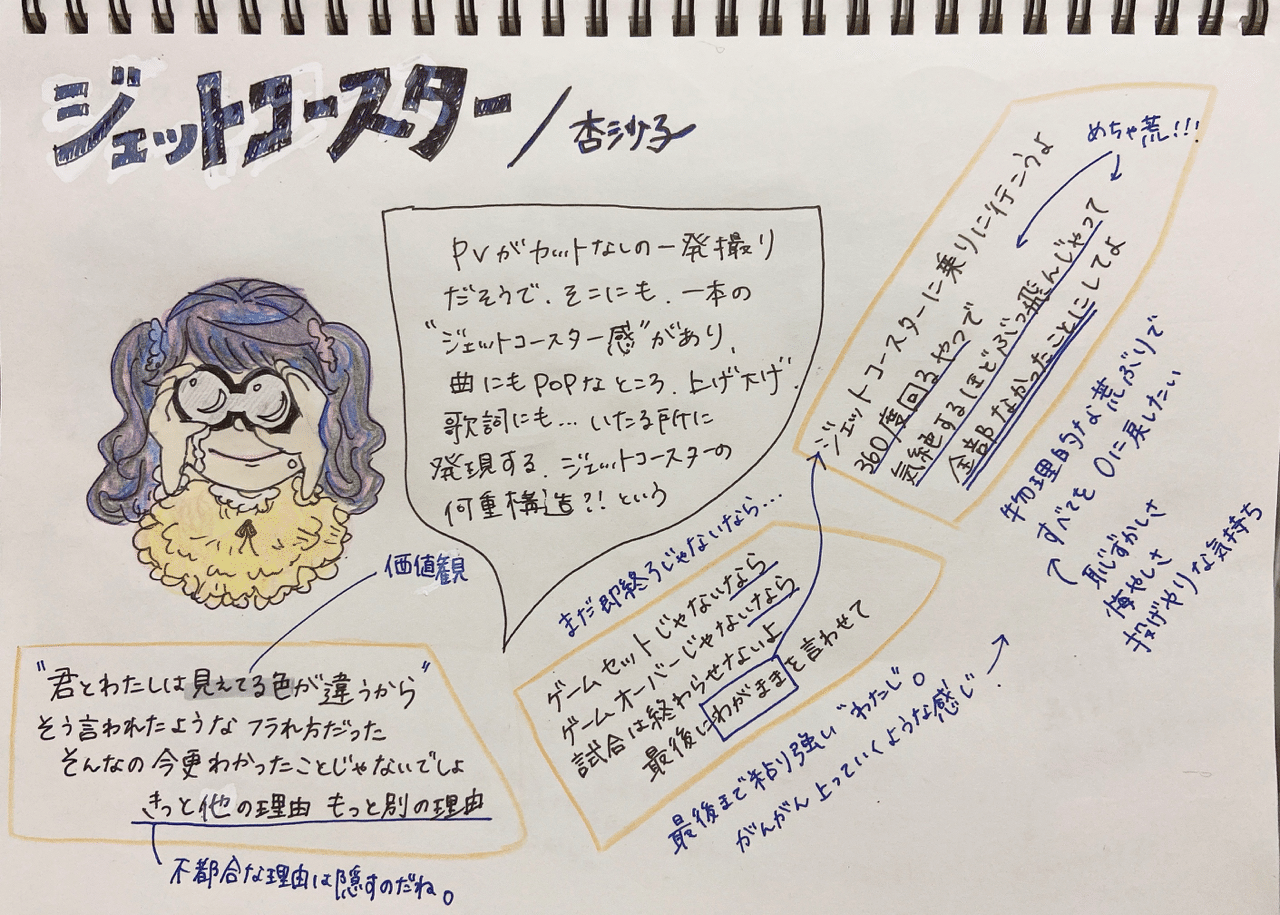 ジェットコースター/杏沙子
PVがカットなしの一発撮り
だそうで、そこにも、一本の
"ジェットコースター感"があり、
曲にもPOPなところ、上げ下げ、
歌詞にも…いたる所に
発現する、ジェットコースターの
何重構造?!という
めちゃ荒!!!
ジェットコースターに乗りに行こうよ
360度回るやつで
気絶するほどぶっ飛んじゃって
全部なかったことにしてよ
物理的な荒ぶりで
すべてを0に戻したい
恥ずかしさ
悔やしさ
投げやりな気持ち
価値観
"君とわたしは見えてる色が違うから"
そう言われたような フラれ方だった
そんなの今更わかったことじゃないでしょ
きっと他の理由 もっと別の理由
不都合な理由は隠すのだね。
まだ即終ろじゃないなら…
ゲームセットじゃないなら
ゲームオーバーじゃないなら
試合は終わらせないよ
最後にわがままを言わせて
最後まで粘り強い"わたし"。
がんがん上っていくような感じ